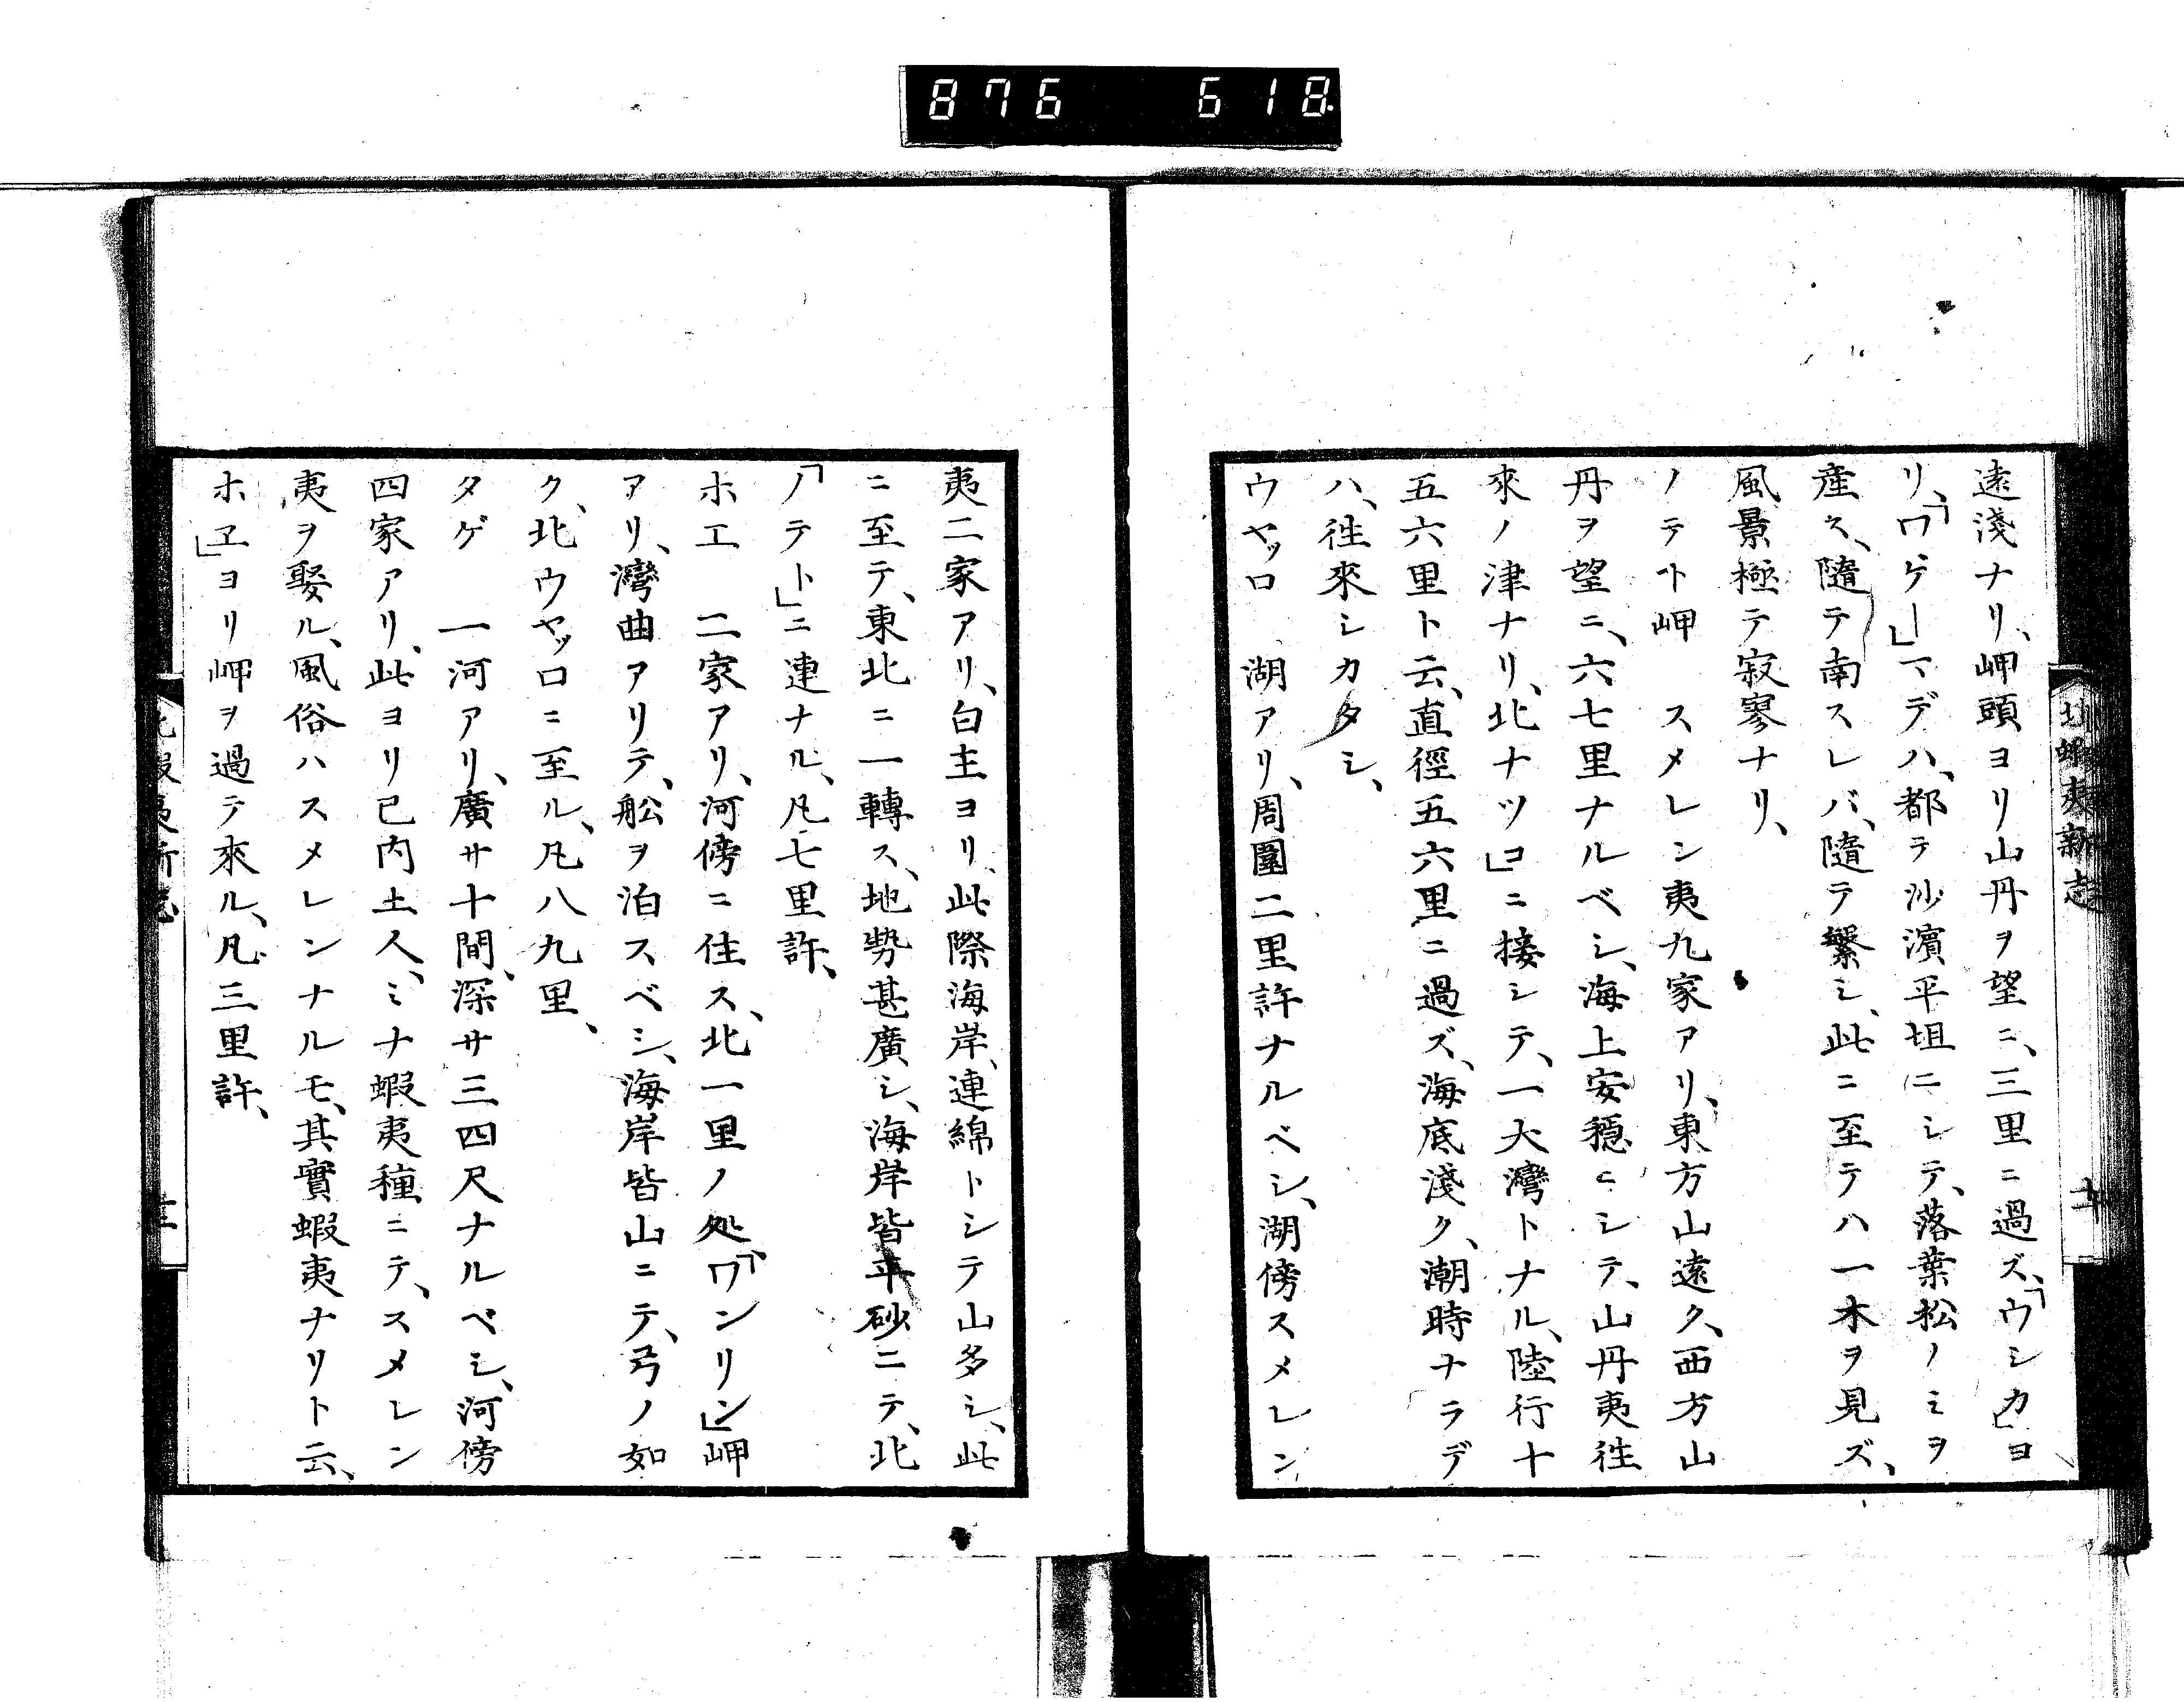 876 618
北蝦夷新志
遠淺ナリ、岬頭ヨリ山丹ヲ望ニ、三里ニ過ズ、「ウシカ」ヨ
リ、「ワゲー」マデハ、都テ沙濱平坦ニシテ、落葉松ノミヲ
産ス、隨テ南スレバ、隨テ繁シ、此ニ至テハ一木ヲ見ズ、
風景極テ寂寥ナリ、
ノテト岬　スメレン夷九家アリ、東方山遠ク、西方山
丹ヲ望ニ、六七里ナルベシ、海上安穏ニシテ、山丹夷徃
來ノ津ナリ、北ナツコ」ニ接シテ、一大灣トナル、陸行十
五六里ト云、直徑五六里ニ過ズ、海底淺ク、潮時ナラデ
ハ、徃來シカタシ、
ウヤッロ　湖アリ、周圍二里許ナルベシ、湖傍スメレン
夷二家アリ、白主ヨリ、此際海岸、連綿トシテ山多シ、此
ニ至テ、東北ニ一轉ス、地勢甚廣シ、海岸皆平砂ニテ、北
「ノテト」ニ連ナル、凡七里許、
ホエ　二家アリ、河傍ニ住ス、北一里ノ処、「ワンリン」岬
アリ、灣曲アリテ、舩ヲ泊スベシ、海岸皆山ニテ、弓ノ如
ク、北ウヤッロニ至ル、凡八九里、
タゲ　一河アリ、廣サ十間、深サ三四尺ナルベシ、河傍
四家アリ、此ヨリ已内土人、ミナ蝦夷種ニテ、スメレン
夷ヲ娶ル、風俗ハスメレンナルモ、其實蝦夷ナリト云、
ホヱ」ヨリ岬ヲ過テ來ル、凡三里許、